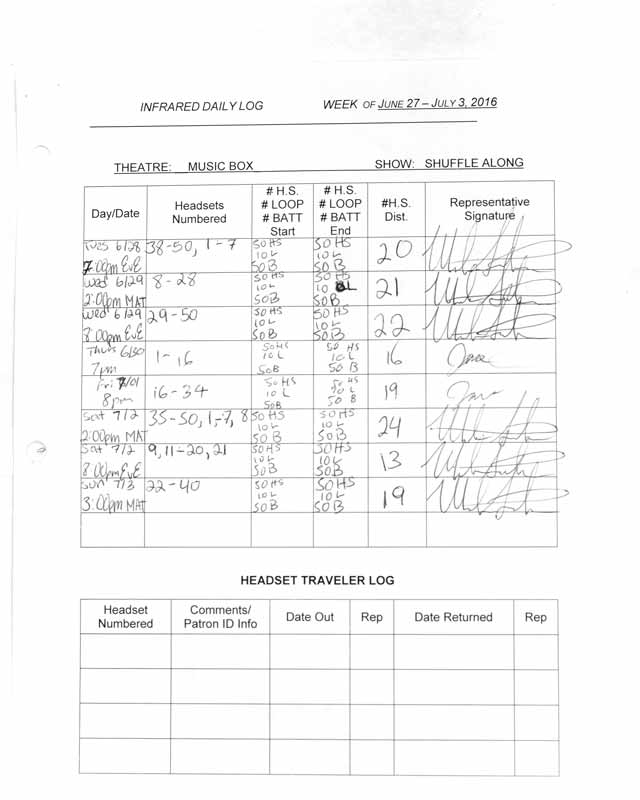 INFRARED DAILY LOG WEEK OF JUNE 27 – JULY 3, 2016
THEATRE: MUSIC BOX SHOW: SHUFFLE ALONG
Day/Date Headsets Numbered # H.S. # LOOP # BATT Start # H.S. # LOOP # BATT End #H.S. Dist. Representative Signature
Tues 6/28 7:00pm EvE 38-50, 1-7 50HS 10L 50B 50HS 10L 50B 20
Wed 6/29 2:00pm MAT 8-28 50HS 10L 50B 50HS 10 L 50B 21
Wed 6/29 8:00pm EvE 29-50 50HS 10L 50B 50HS 10L 50B 22
Thurs 6/30 7pm 1-16 50HS 10L 50B 50 HS 10L 50 B 16
Fri 7/01 8pm 16-34 50HS 10 L 50B 50 HS 10 L 50 B 19
Sat 7/2 2:00pm MAT 35-50, 1-7, 8 50HS 10L 50B 50HS 10L 50B 24
Sat 7/2 8:00pm EvE 9, 11-20, 21 50HS 10L 50B 50HS 10L 50B 13
Sun 7/3 3:00pm MAT 22-40 50HS 10L 50B 50HS 10L 50B 19
HEADSET TRAVELER LOG
Headset Numbered Comments/ Patron ID Info Date Out Rep Date Returned Rep